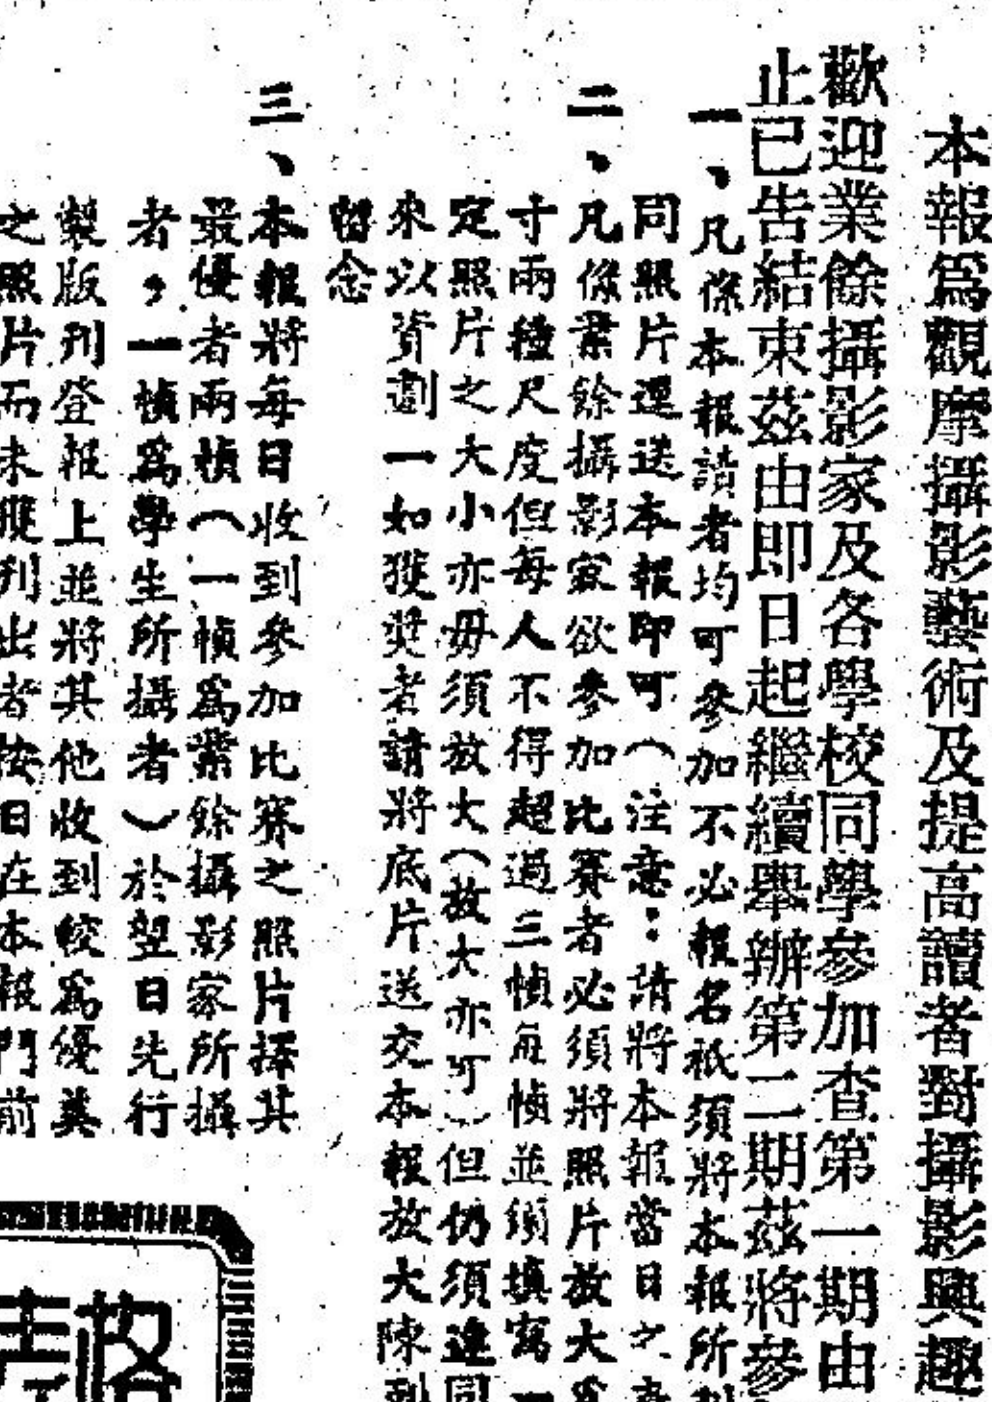 本報爲觀摩攝影藝術及提高讀者對攝影興趣
歡迎業餘攝影家及各學校同學參加查第一期由
止已告結束茲由即日起繼續舉辦第二期茲將參
一、凡係本報讀者均可參加不必報名祇須將本報所
同照片逕送本報即可（注意：請將本報當日之
二、凡係業餘攝影家欲參加比賽者必須將照片放大爲
寸兩種尺度但每人不得超過三幀每幀並須填寫一
定照片之大小亦毋須放大（放大亦可）但仍須連同
來以資劃一如獲獎者請將底片送交本報放大陳列
留念
三、本報將每日收到參加比賽之照片擇其
最優者兩幀（一幀爲業餘攝影家所攝
者，一幀爲學生所攝者）於翌日先行
製版刊登報上並將其他收到較爲優美
之照片而未獲刊出者按日在本報門前
格